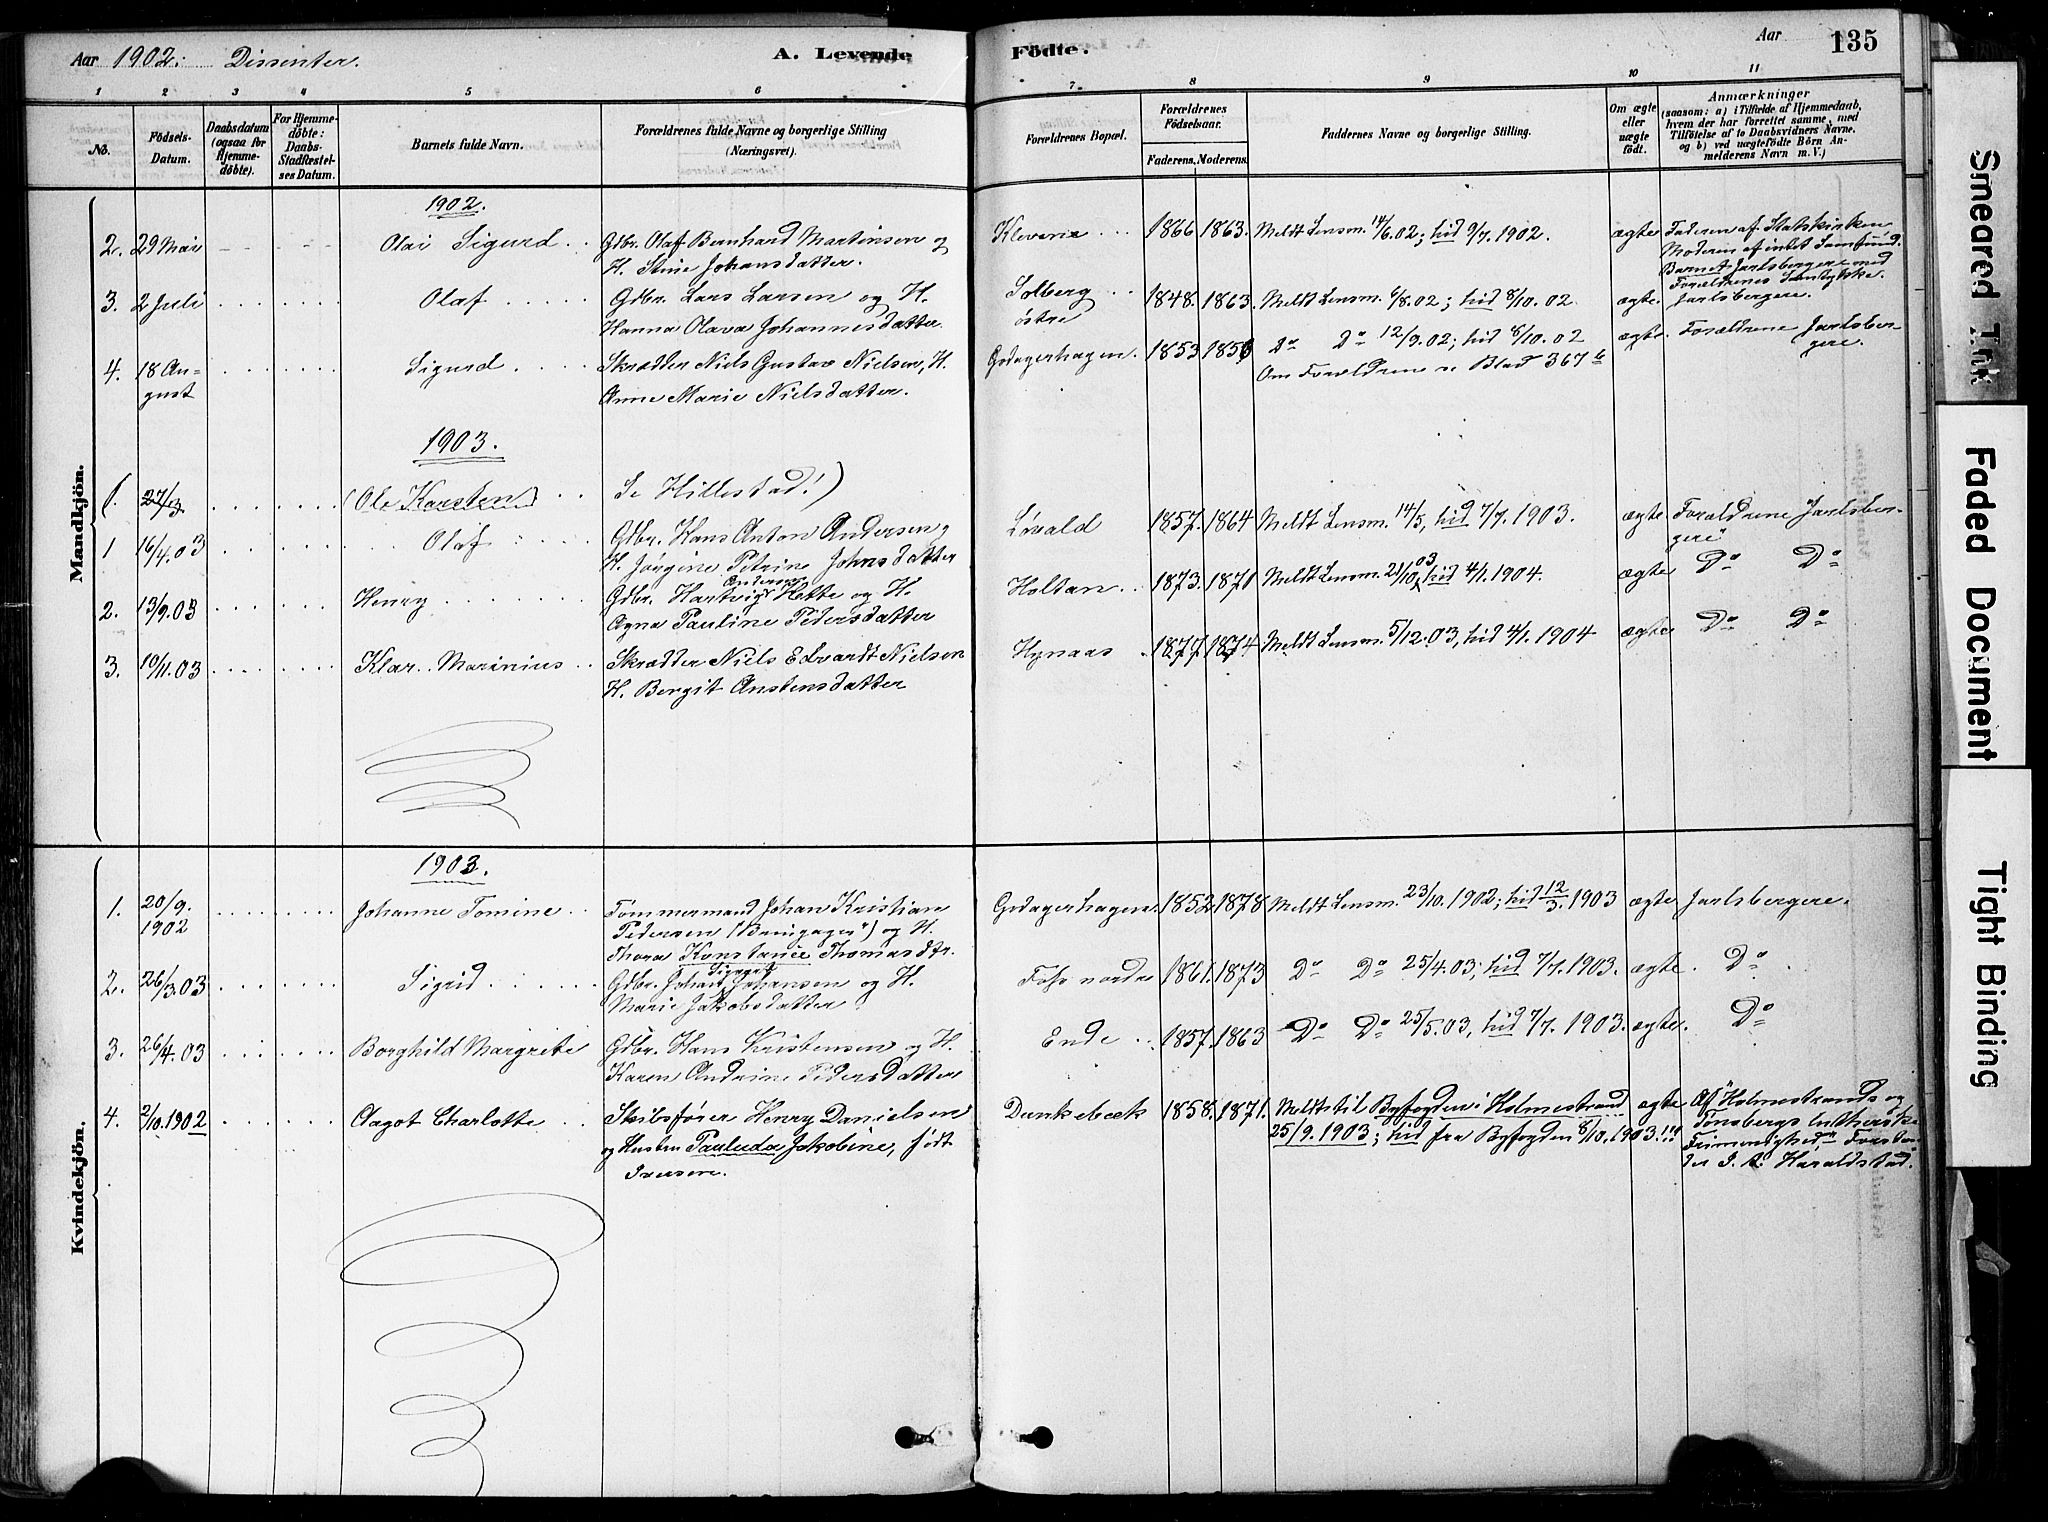 Aar 1902. Dissenter. A. Levende Födte. Aar 135
1 2 3 4 5 6 7 8 9 10 11
No. Födsels-Datum. Daabsdatum (ogsaa for Hjemmedöbte). For Hjemmedöbte: Daabs-Stadfæstelses Datum. Barnets fulde Navn. Forældrenes fulde Navne og borgerlige Stilling (Næringsvei). Forældrenes Bopæl. Forældrenes Födselsaar. Faderens. Moderens. Faddernes Navne og borgerlige Stilling. Om ægte eller uægte födt. Anmærkninger (saasom: a) i Tilfælde af Hjemmedaab, hvem der har forrettet samme, med Tilföielse af to Daabsvidners Navne. og b) ved uægtefödte Börn Anmelderens Navn m. V.)
Mandkjön.
1902.
2. 29 Mai Olai Sigurd Gdbr. Olaf Bernhard Martinsen og Klevene 1866 1863. Meldt Lensm. 14/6.02; hid 9/7.1902. ægte Faderen af Statskirken
H. Stine Johansdatter. Moderen af intet Samfund.
Barnet Jarlsbergere med
Forældrenes Samtykke.
3. 2 Juli Olaf Gdbr. Lars Larsen og H. Solberg 1848. 1863. Meldt Lensm. 6/8.02; hid 8/10.02 ægte. Jarlsbergere.
Hanna Olava Johannesdatter østre
4. 18 Au- Sigurd Skrædder Niels Gustav Nielsen, H. Godagerhagen. 1853 1856 Do Do 12/9.02; hid 8/10.02 ægte. Forældrene Jarlsber-
gust Anne Marie Nielsdatter. Om Forældrene se Blad 367 gere.
1903.
(1. 27/3 (Ole Karsten) Se Hillestad!)
1 16/4.03 Olaf Gdbr. Hans Anton Andersen og Løvald 1857. 1864 Meldt Lensm. 14/5, hid 7/7.1903. ægte Forældrene Jarlsber-
H. Jørgine Petrine Johnsdatter gere
2. 13/9.03 Henry Gdbr. Hartvig Andersen Hette og H. Holtan 1873. 1871 Meldt Lensm. 21/10 03, hid 4/1.1904. ægte Do Do
Agna Pauline Pedersdatter
3. 10/11.03 Klar Marinius Skrædder Niels Edvardt Nielsen Hynaas 1877. 1874 Meldt Lensm. 5/12.03, hid 4/1.1904 ægte Do Do
H. Bergit Anstensdatter
Kvindekjön.
1903.
1. 20/9. 1902 Johanne Tomine Tømmermand Johan Kristian Godagerhagen. 1852. 1878. Meldt Lensm. 23/10.1902; hid 12/3.1903 ægte Jarlsbergere.
Pedersen og H.
Thora Konstance Thomasdtr.
2. 26/3.03 Sigrid Gdbr. Johan Johansen og H. Fohs nordre 1861. 1873 Do Do 25/4.03; hid 7/7.1903. ægte. Do
Marie Jakobsdatter
3. 26/4.03 Borghild Margrete Gdbr. Hans Kristensen og H. Ende 1857. 1863 Do Do 25/5.03, hid 7/7.1903. ægte. Do
Karen Andrine Pedersdatter
4. 2/10.1902 Aagot Charlotte Skibsfører Henry Danielsen Dunkebæk 1858. 1871. Meldt til Byfogden i Holmestrand ægte Af "Holmestrands og
og Hustru Pauluda Jakobine, født 25/9.1903; hid fra Byfogden 8/10.1903.!! Tønsbergs lutherske
Iversen. Frimenighed", Forstan-
der Haraldstad.
Smeared Ink
Faded Document
Tight Binding